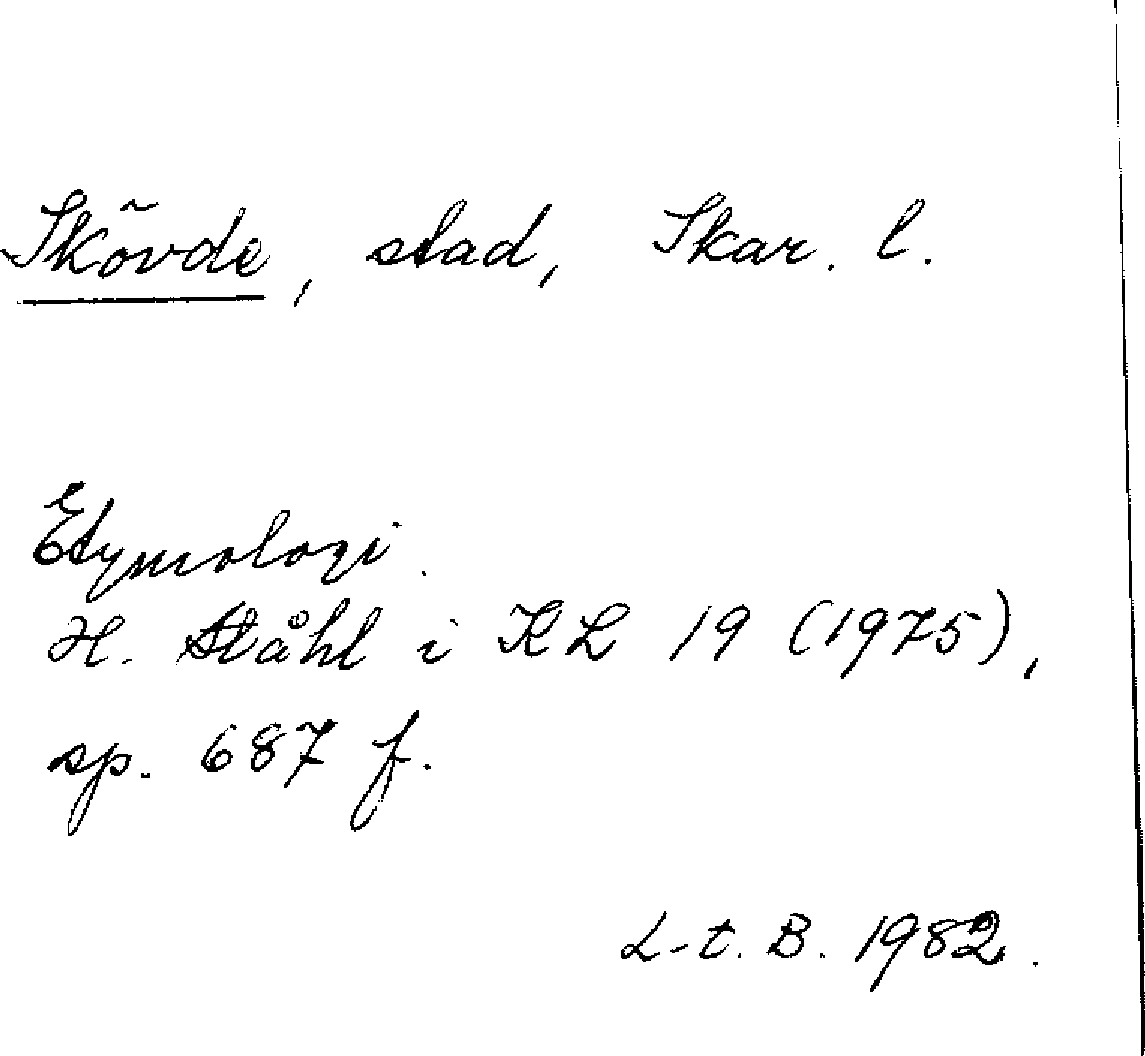 Skövde, stad, Skar. l.
Etymologi.
H. Ståhl i KL 19 (1975),
sp. 687 f.
L-t. B. 1982.